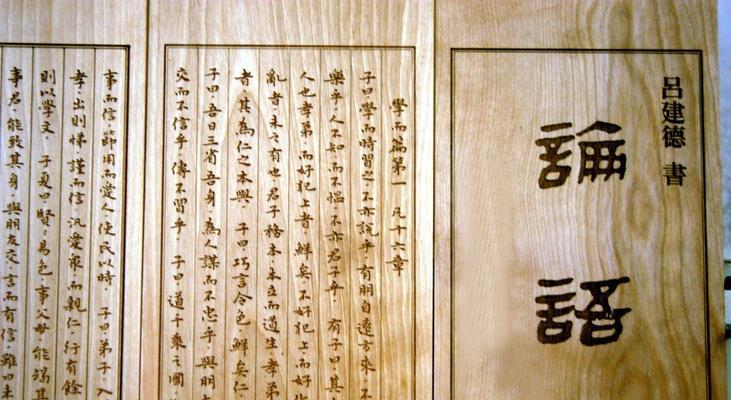 呂建德 書
論語
學而篇第一 凡十六章
子曰·學而時習之·不亦說乎·有朋自遠方來·不
樂乎·人不知·而不慍·不亦君子乎· 有子曰·其
人也孝弟·而好犯上者·鮮矣·不好犯上·而好作
亂者·未之有也·君子務本·本立而道生·孝弟
者·其為仁之本與· 子曰·巧言令色·鮮矣仁·
子曰·吾日三省吾身·為人謀而不忠乎·與朋
交而不信乎·傳不習乎· 子曰·道千乘之國·
事而信·節用而愛人·使民以時· 子曰·弟子入
孝·出則悌·謹而信·汎愛眾·而親仁·行有餘
則以學文· 子夏曰·賢〻易色·事父母·能竭其
事君·能致其身·與朋友交·言而有信·雖曰未